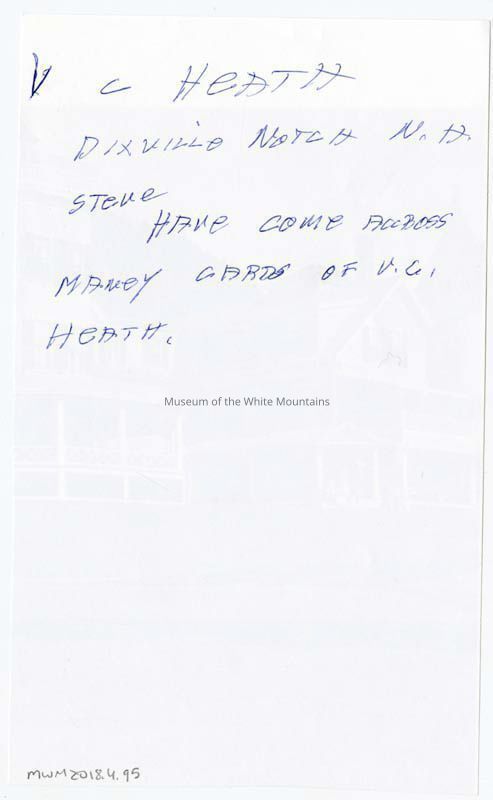 V C HEATH
DIXVILLE NOTCH N.H.
STEVE
HAVE COME ACCROSS
MANEY CARDS OF V.C.
HEATH.
Museum of the White Mountains
MWM2018.4.95